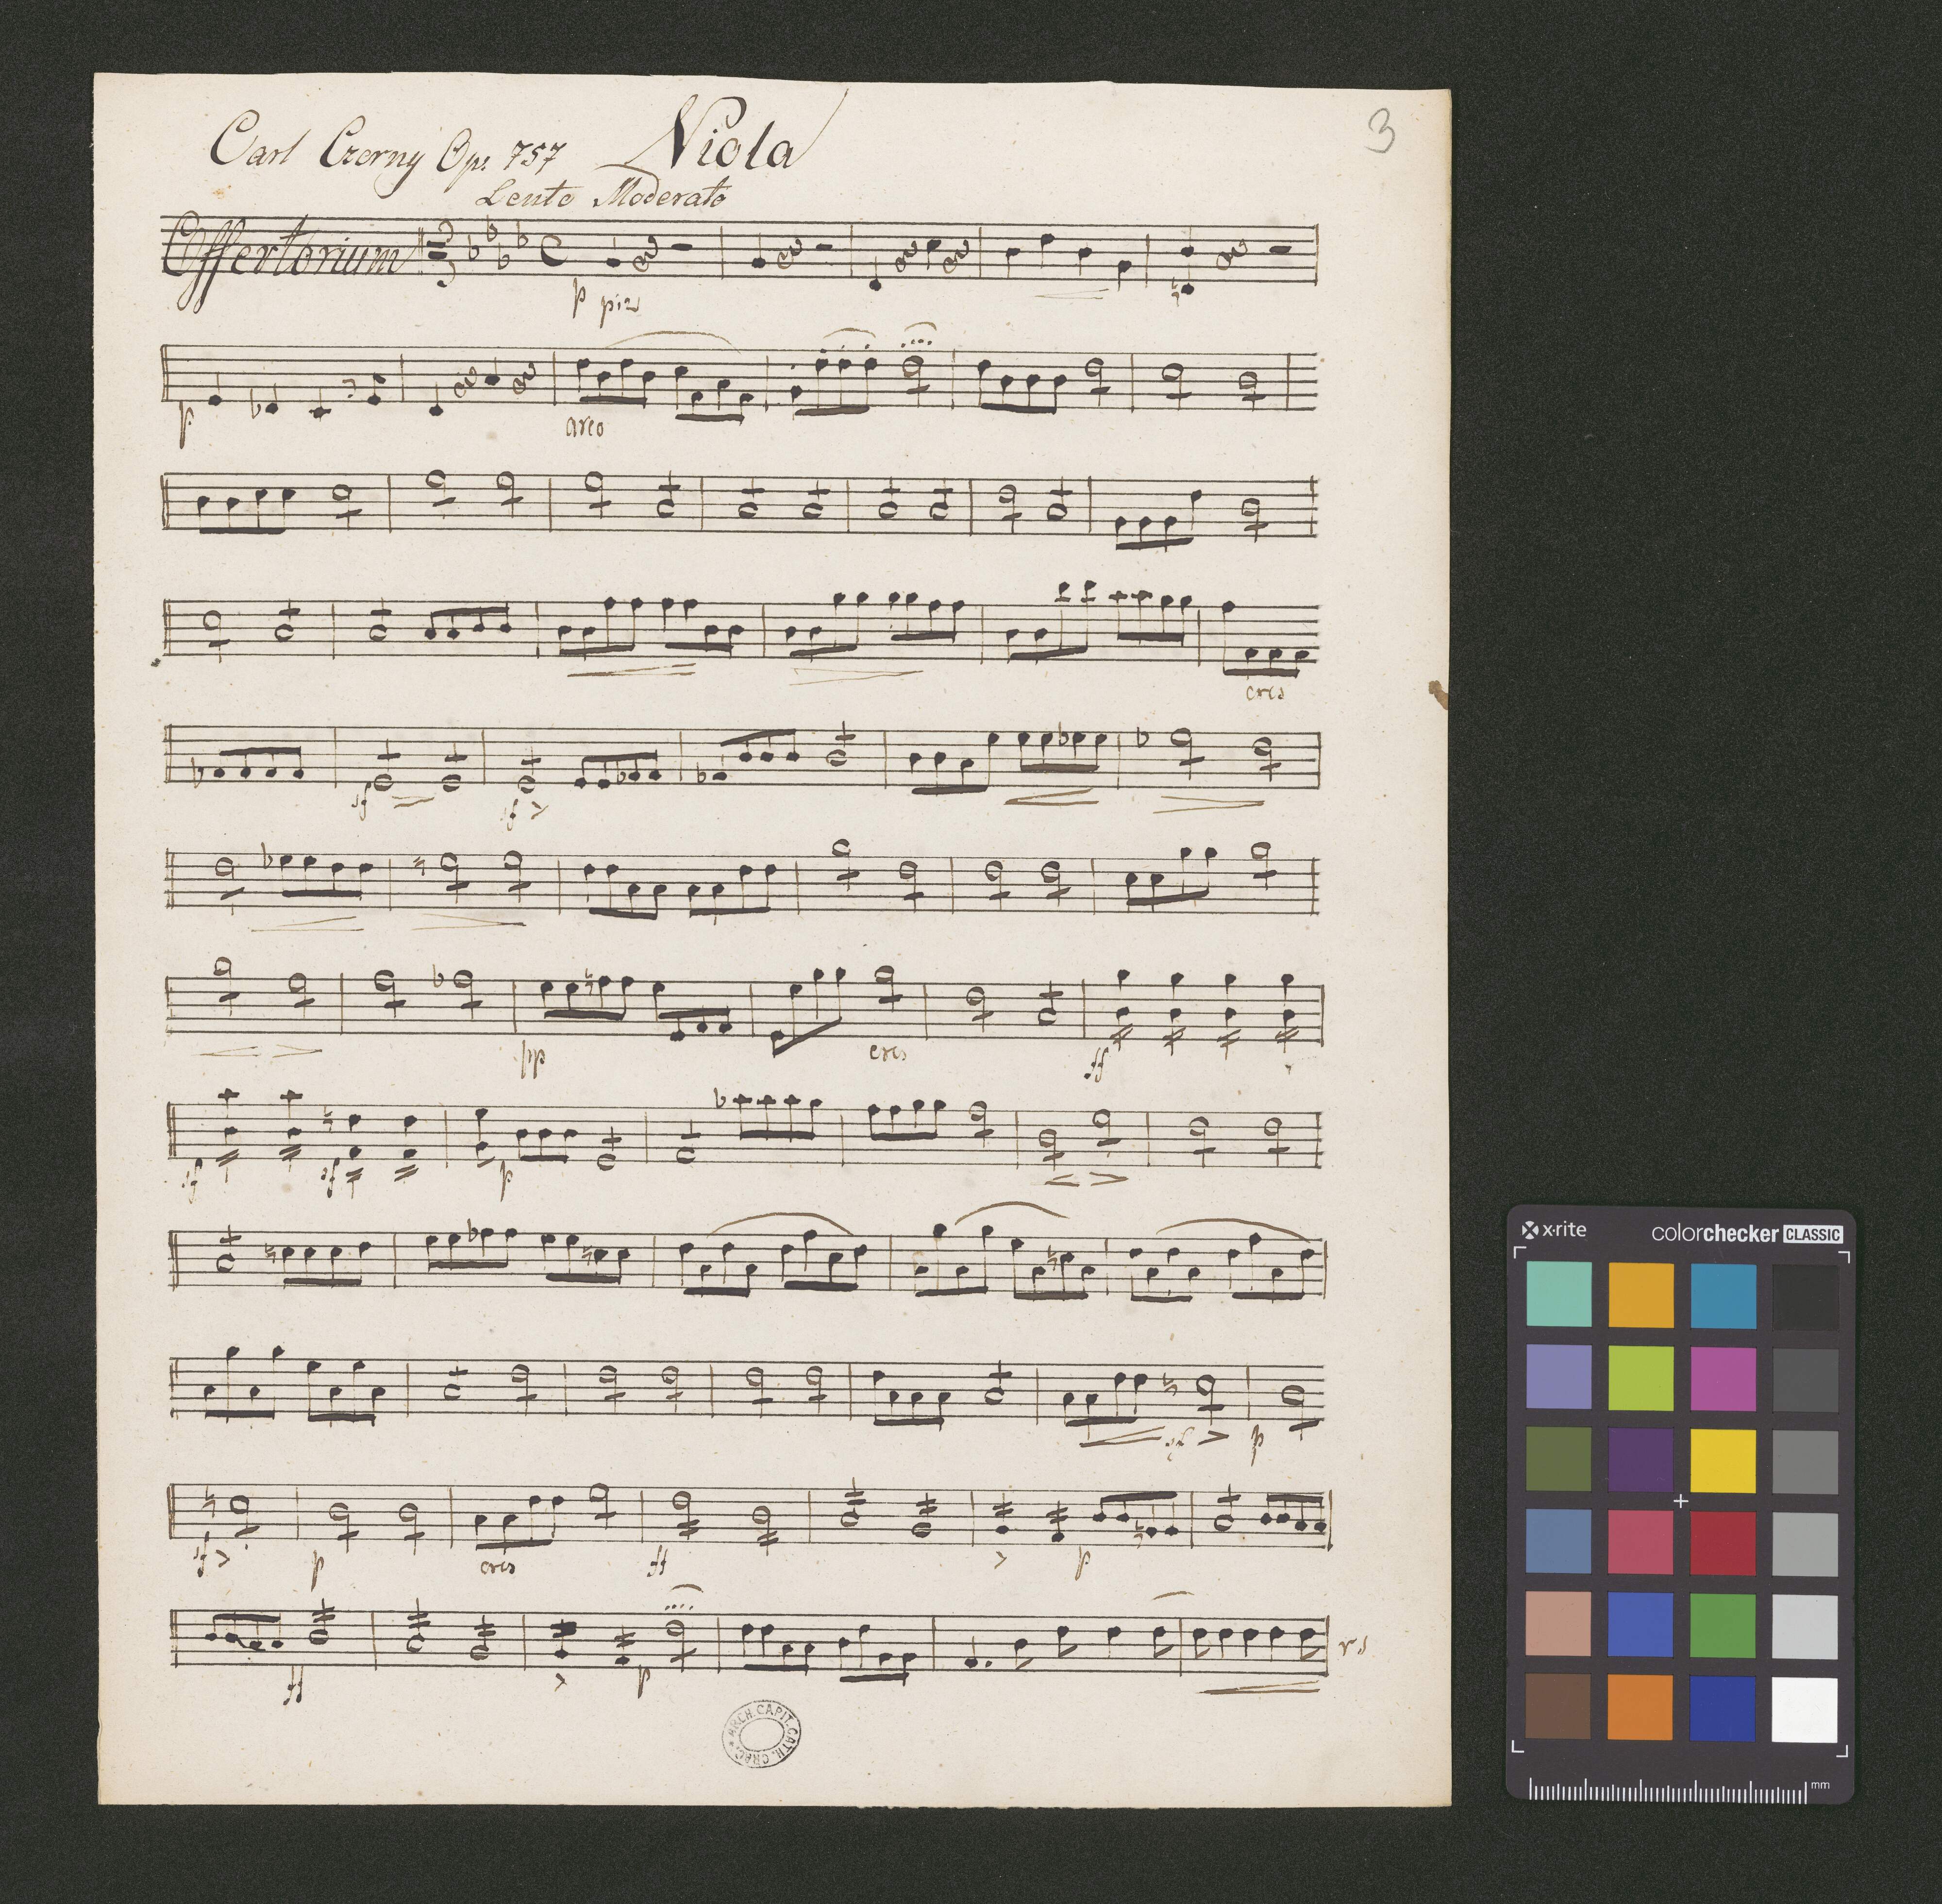 3
Carl Czerny Op: 757 Viola
Lento Moderato
Offertorium
p piz
p arco
cres
sf sf
pp cres ff
sf sf p
sf p
sf p cres ff p
ff p vs
ARCH. CAPIT. CATH. CRAC.
x-rite colorchecker CLASSIC
mm